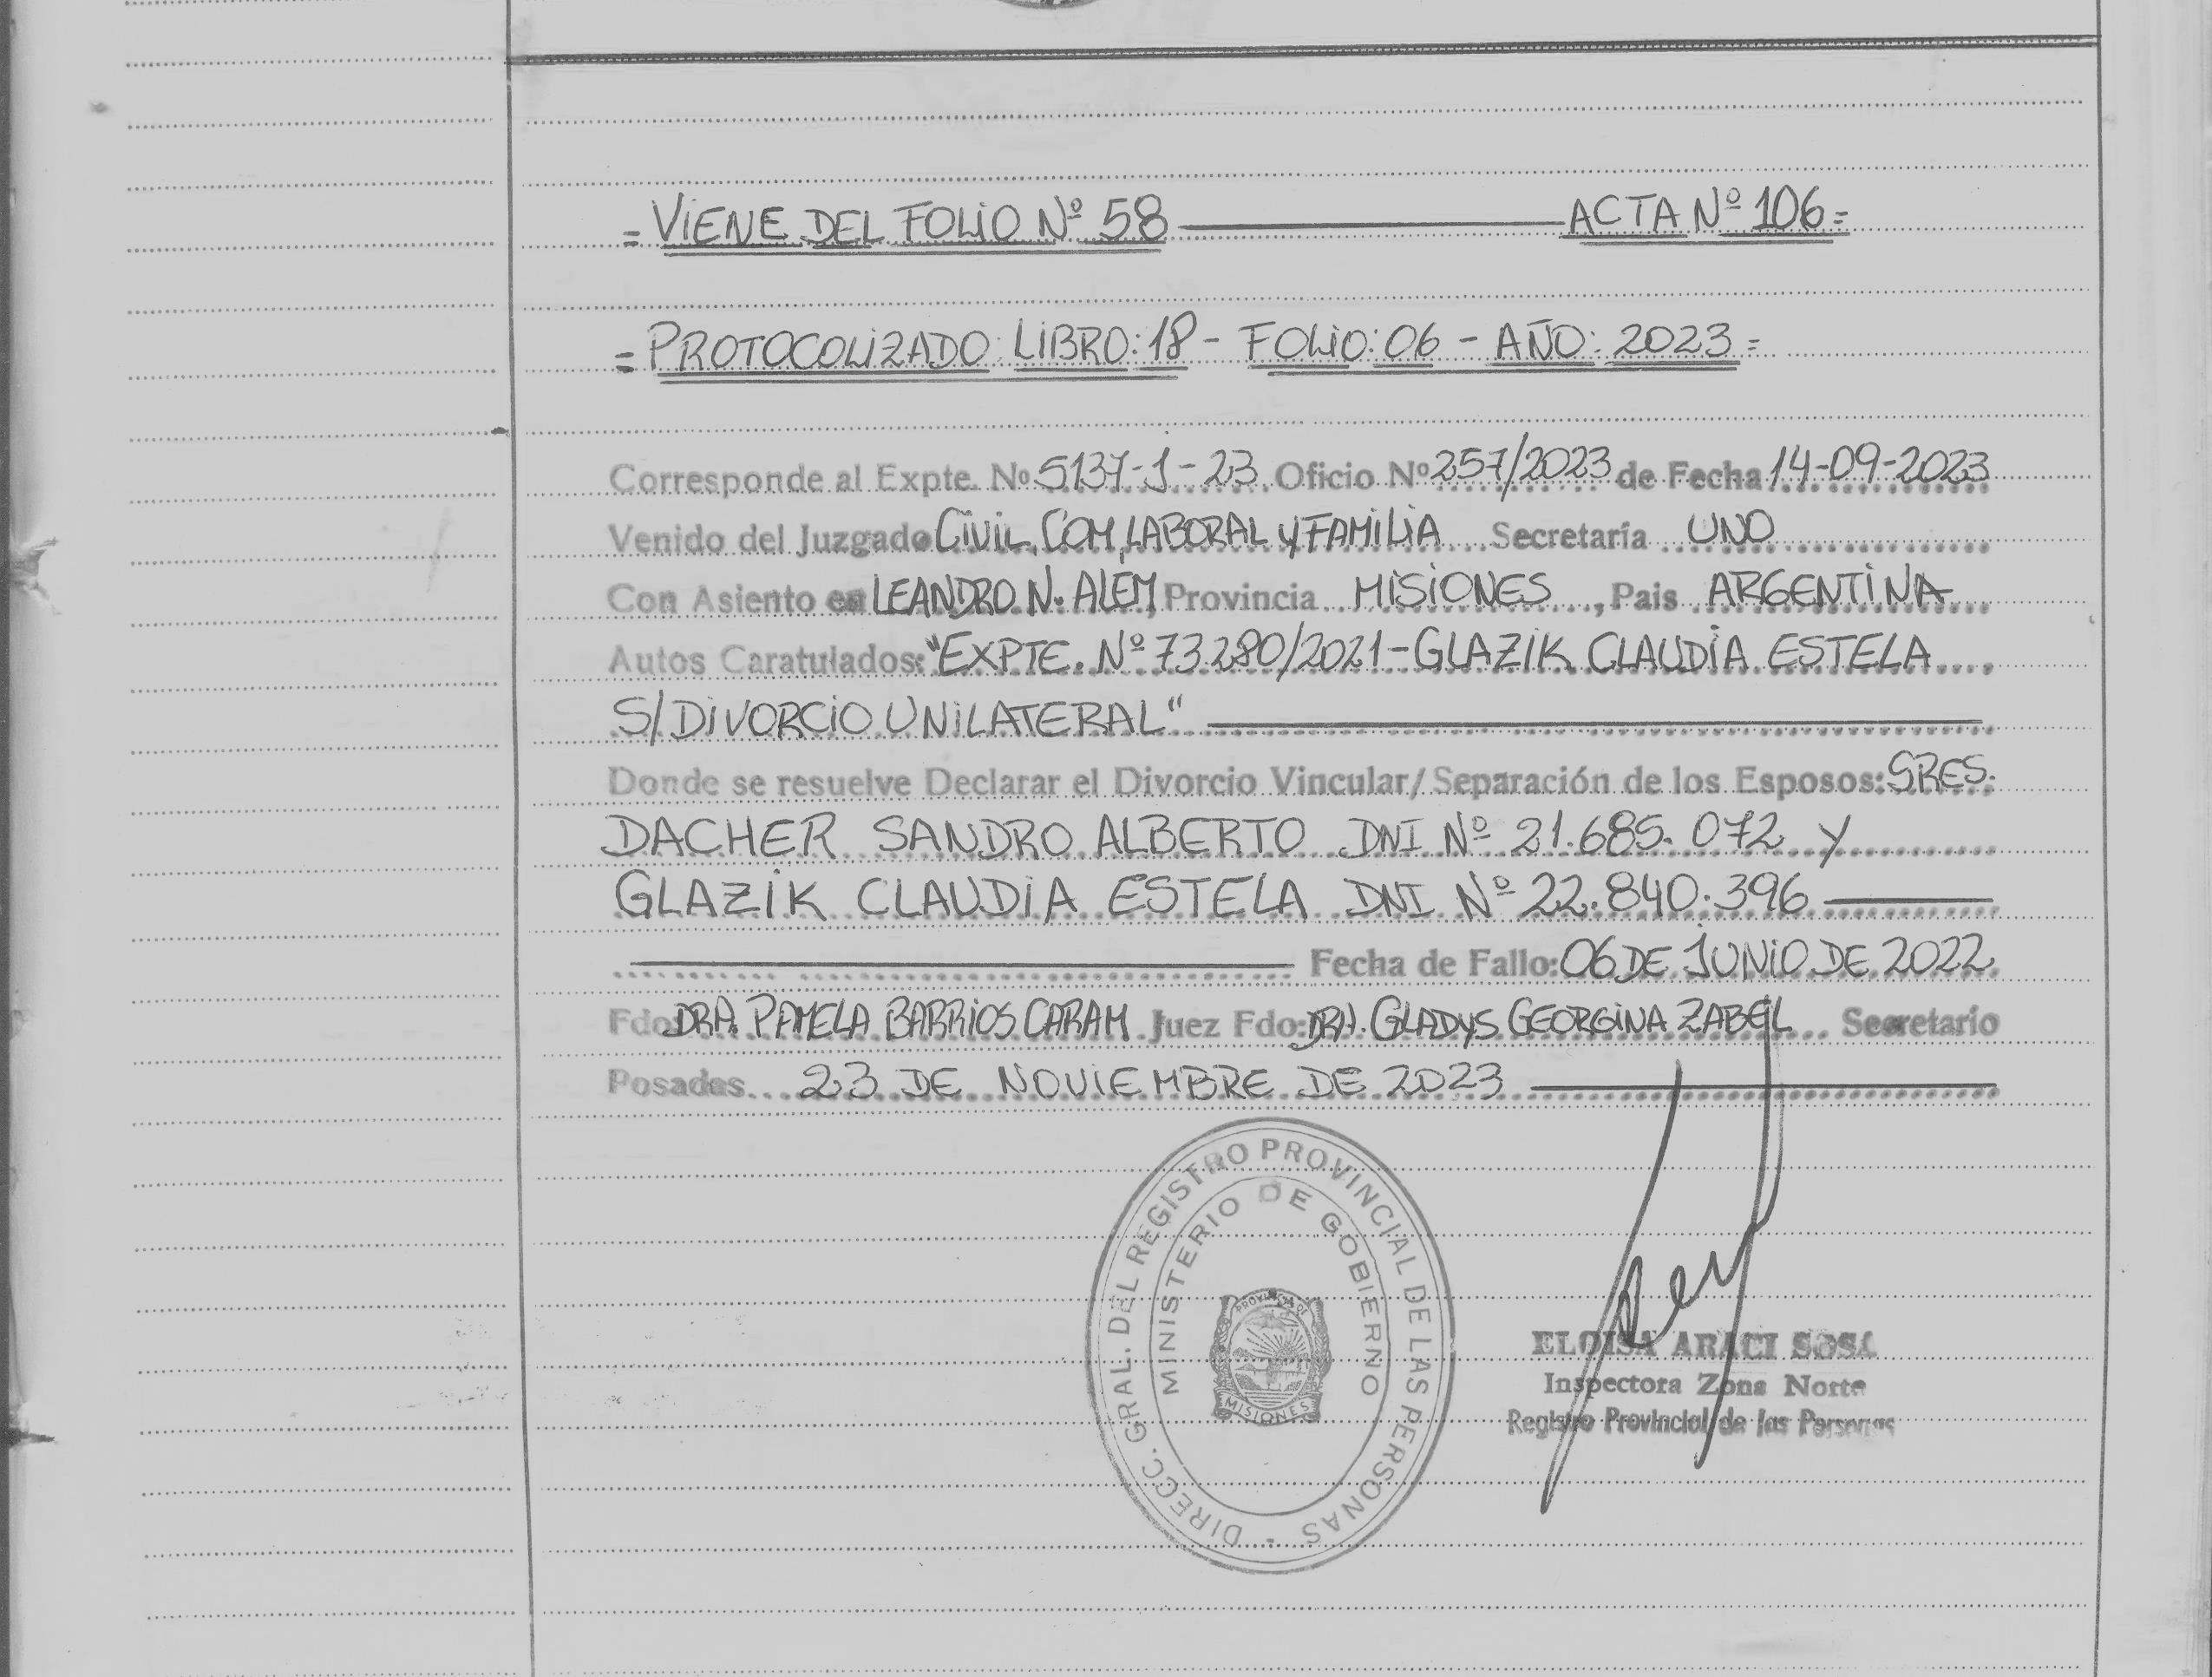 = VIENE DEL FOLIO Nº 58 ACTA Nº 106 =
= PROTOCOLIZADO: LIBRO: 18 - FOLIO: 06 - AÑO: 2023 =
Corresponde al Expte. Nº 5137-J-23 Oficio Nº 257/2023 de Fecha 14-09-2023
Venido del Juzgado CIVIL, COM, LABORAL Y FAMILIA Secretaría UNO
Con Asiento en LEANDRO N. ALEM, Provincia MISIONES, Pais ARGENTINA
Autos Caratulados: "EXPTE. Nº 73.280/2021 - GLAZIK CLAUDIA ESTELA
S/ DIVORCIO UNILATERAL"
Donde se resuelve Declarar el Divorcio Vincular/ Separación de los Esposos: SRES.
DACHER SANDRO ALBERTO DNI Nº 21.685.072 Y
GLAZIK CLAUDIA ESTELA DNI Nº 22.840.396
Fecha de Fallo: 06 DE JUNIO DE 2022
Fdo DRA. PAMELA BARRIOS CARAM Juez Fdo: DRA. GLADYS GEORGINA ZABEL Secretario
Posadas 23 DE NOVIEMBRE DE 2023
DIRECC. GRAL. DEL REGISTRO PROVINCIAL DE LAS PERSONAS -
MINISTERIO DE GOBIERNO
PROVINCIA DE
MISIONES
ELOISA ARACI SOSA
Inspectora Zona Norte
Registro Provincial de las Personas